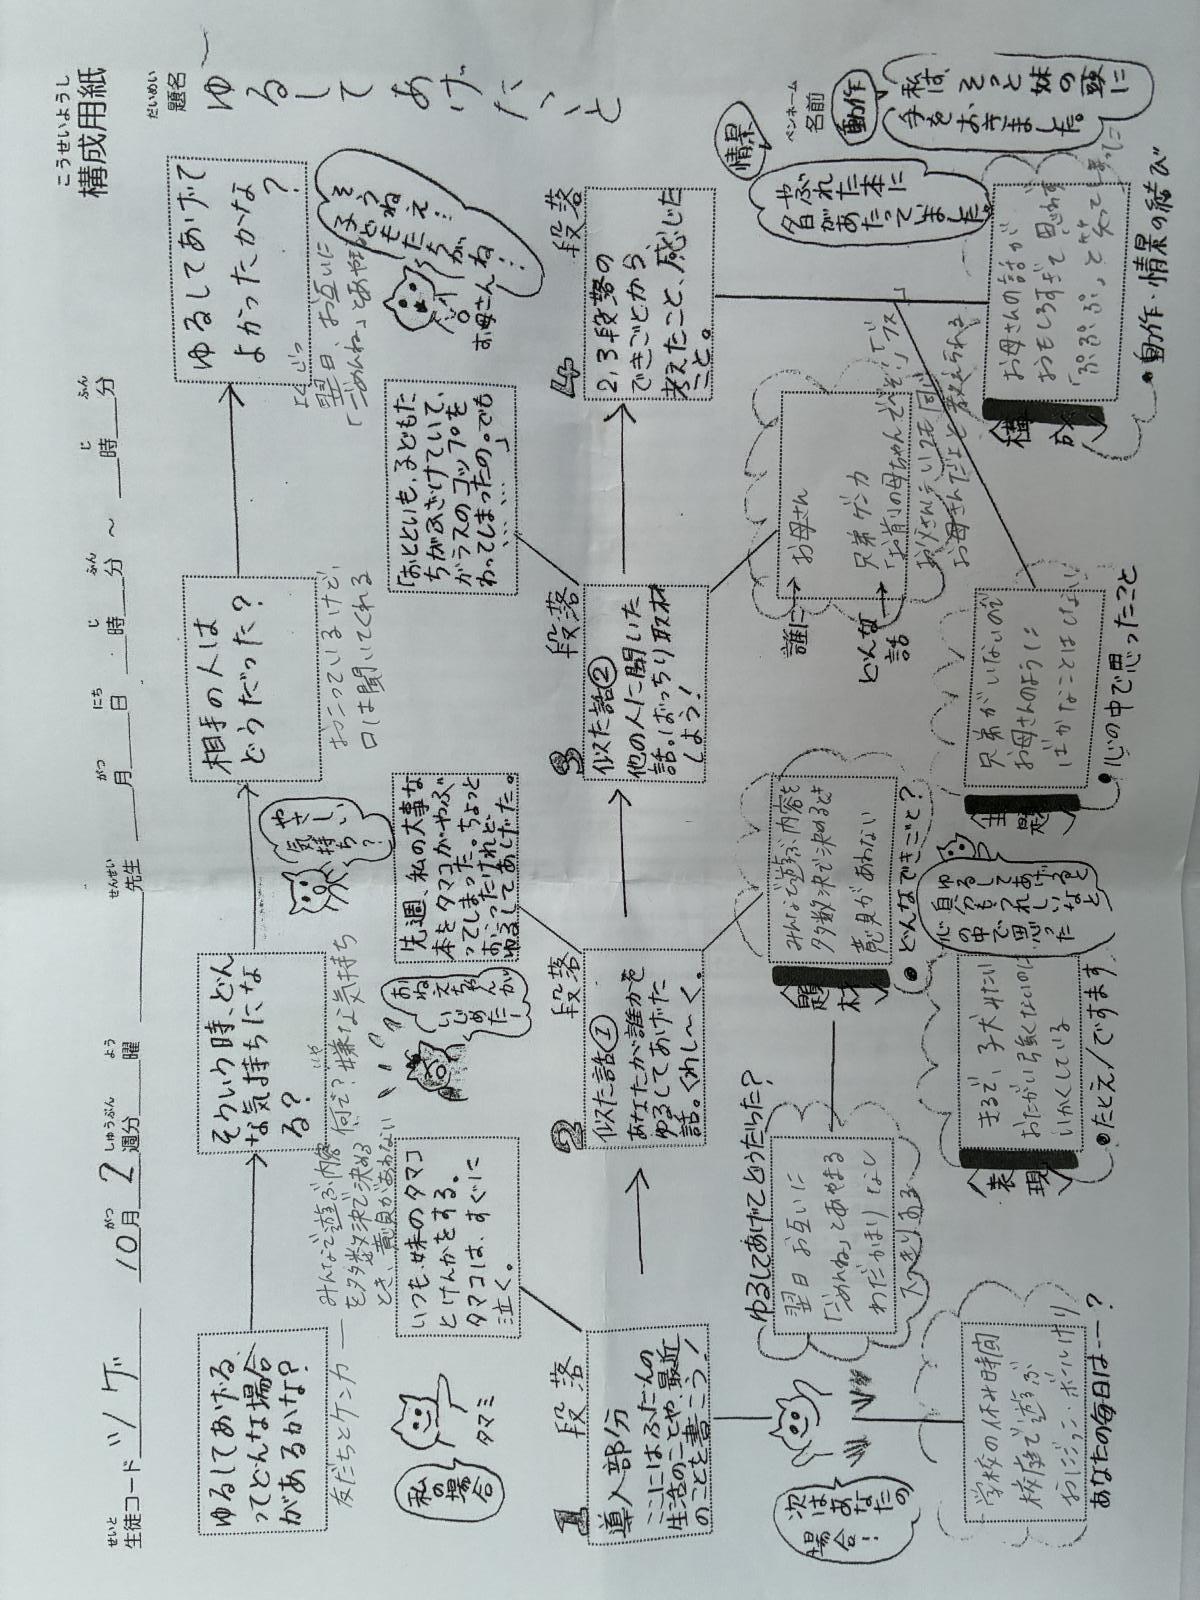 こうせいようし
構成用紙
せいと
生徒コード ツゲ
10月2週分
がつ しゅうぶん
よう
曜
せんせい
先生
がつ にち じ ふん じ ふん
月 日 時 分 ～ 時 分
だいめい
題名
ゆるしてあげたいと
ペンネーム
名前
ゆるしてあげる
ってどんな場合
があるかな?
友だちとケンカ
みんなで遊ぶ内容
を多数決で決める
とき、意見があわない
そういう時、どん
な気持ちにな
る?
何で? 嫌な気持ち
いや
やさしい
気持ち?
相手の人は
どうだった?
おこっているけど、
口は聞いてくれる
ゆるしてあげて
よかったかな
?
よくじつ
翌日、お互いに
「ごめんね」とあや
そうねえ…
子どもたちが
ねえ…
お母さん
私の
場合
タマミ
いつも、妹のタマコ
とけんかをする。
タマコは、すぐに
泣く。
おねえちゃんが
いじめたー
先週、私の大事な
本をタマコがやぶ
ってしまった。ちょっと
おこったけれど、
ゆるしてあげた。
「おとといも、子どもた
ちがふざけていて、
ガラスのコップを
わってしまったの。でも
……………」
1 段落
導入部分
ここにはふだんの
生活のことや、最近
のことを書こう!
2 段落
似た話①
あなたが誰かを
ゆるしてあげた
話。くわし～く。
3 段落
似た話②
他の人に聞いた
話。ばっちり取材
しよう!
4 段落
2、3段落の
できごとから、
考えたこと、感じた
こと。
次は
あなたの
場合!
学校の休み時間
校庭で遊ぶ
おにごっこ・ボールけり
あなたの毎日は……?
ゆるしてあげてどうだった?
翌日 お互いに
「ごめんね」とあやまる
わだかまりなし
スッキリする
題材
みんなで遊ぶ内容を
多数決で決めるとき
意見があわない
●どんなできごと?
表現
まるで、子犬みたい
おたがい強くないのに
いかくしている
●たとえ/ですます
自分もゆるして
あげると
うれしいなと
心の中で思った
誰に→ お母さん
どんな話→ 兄弟ゲンカ
「お前の母ちゃんでべそ!」「ブス」
お父さんにいつも同じ
お母さんだよと教えられる
主題
兄弟がいないので
お母さんのように
ばかなことはしない
●心の中で思ったこと
情景
やぶれた本に
夕日があたっていました。
動作
私は、そっと妹の頭に
手をおきました。
構成
お母さんの話が
おもしろすぎて思わず
「ぷぷぷ」と笑ってしまった
●動作・情景の結び"